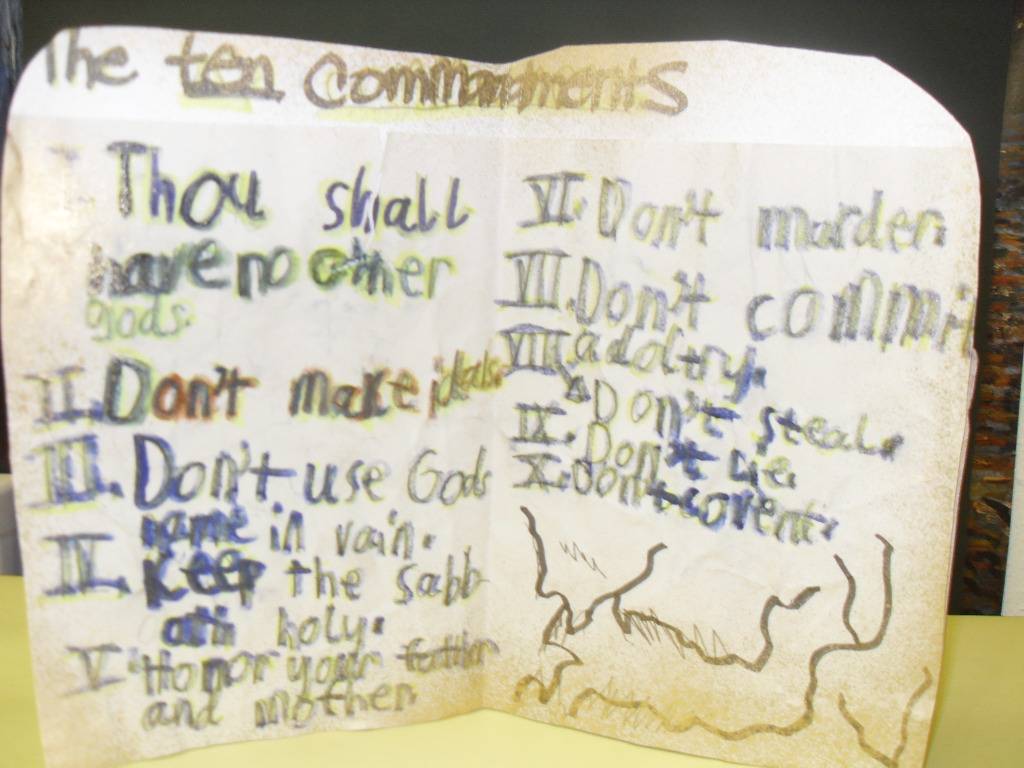 The ten Commandments
I Thou shall
have no other
gods.
II. Don't make idals.
III. Don't use Gods
name in vain.
IV. Keep the sabb
ath holy.
V. Honor your father
and mother.
VI. Don't murder.
VII. Don't commit
VIII adoltry.
Don't steal.
IX. Don't lie.
X. Don't covent.